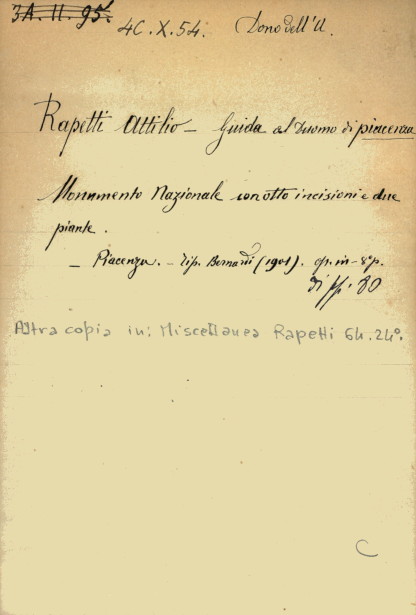 3A. II. 95.
4C. X. 54. Dono dell'U.
Rapetti Attilio – Guida al Duomo di piacenza
Monumento Nazionale con otto incisioni e due
piante.
– Piacenza. – Tip. Bernardi (1901). op. in - 8° p.
di pp. 80
Altra copia in: Miscellanea Rapetti 64. 24°.
C